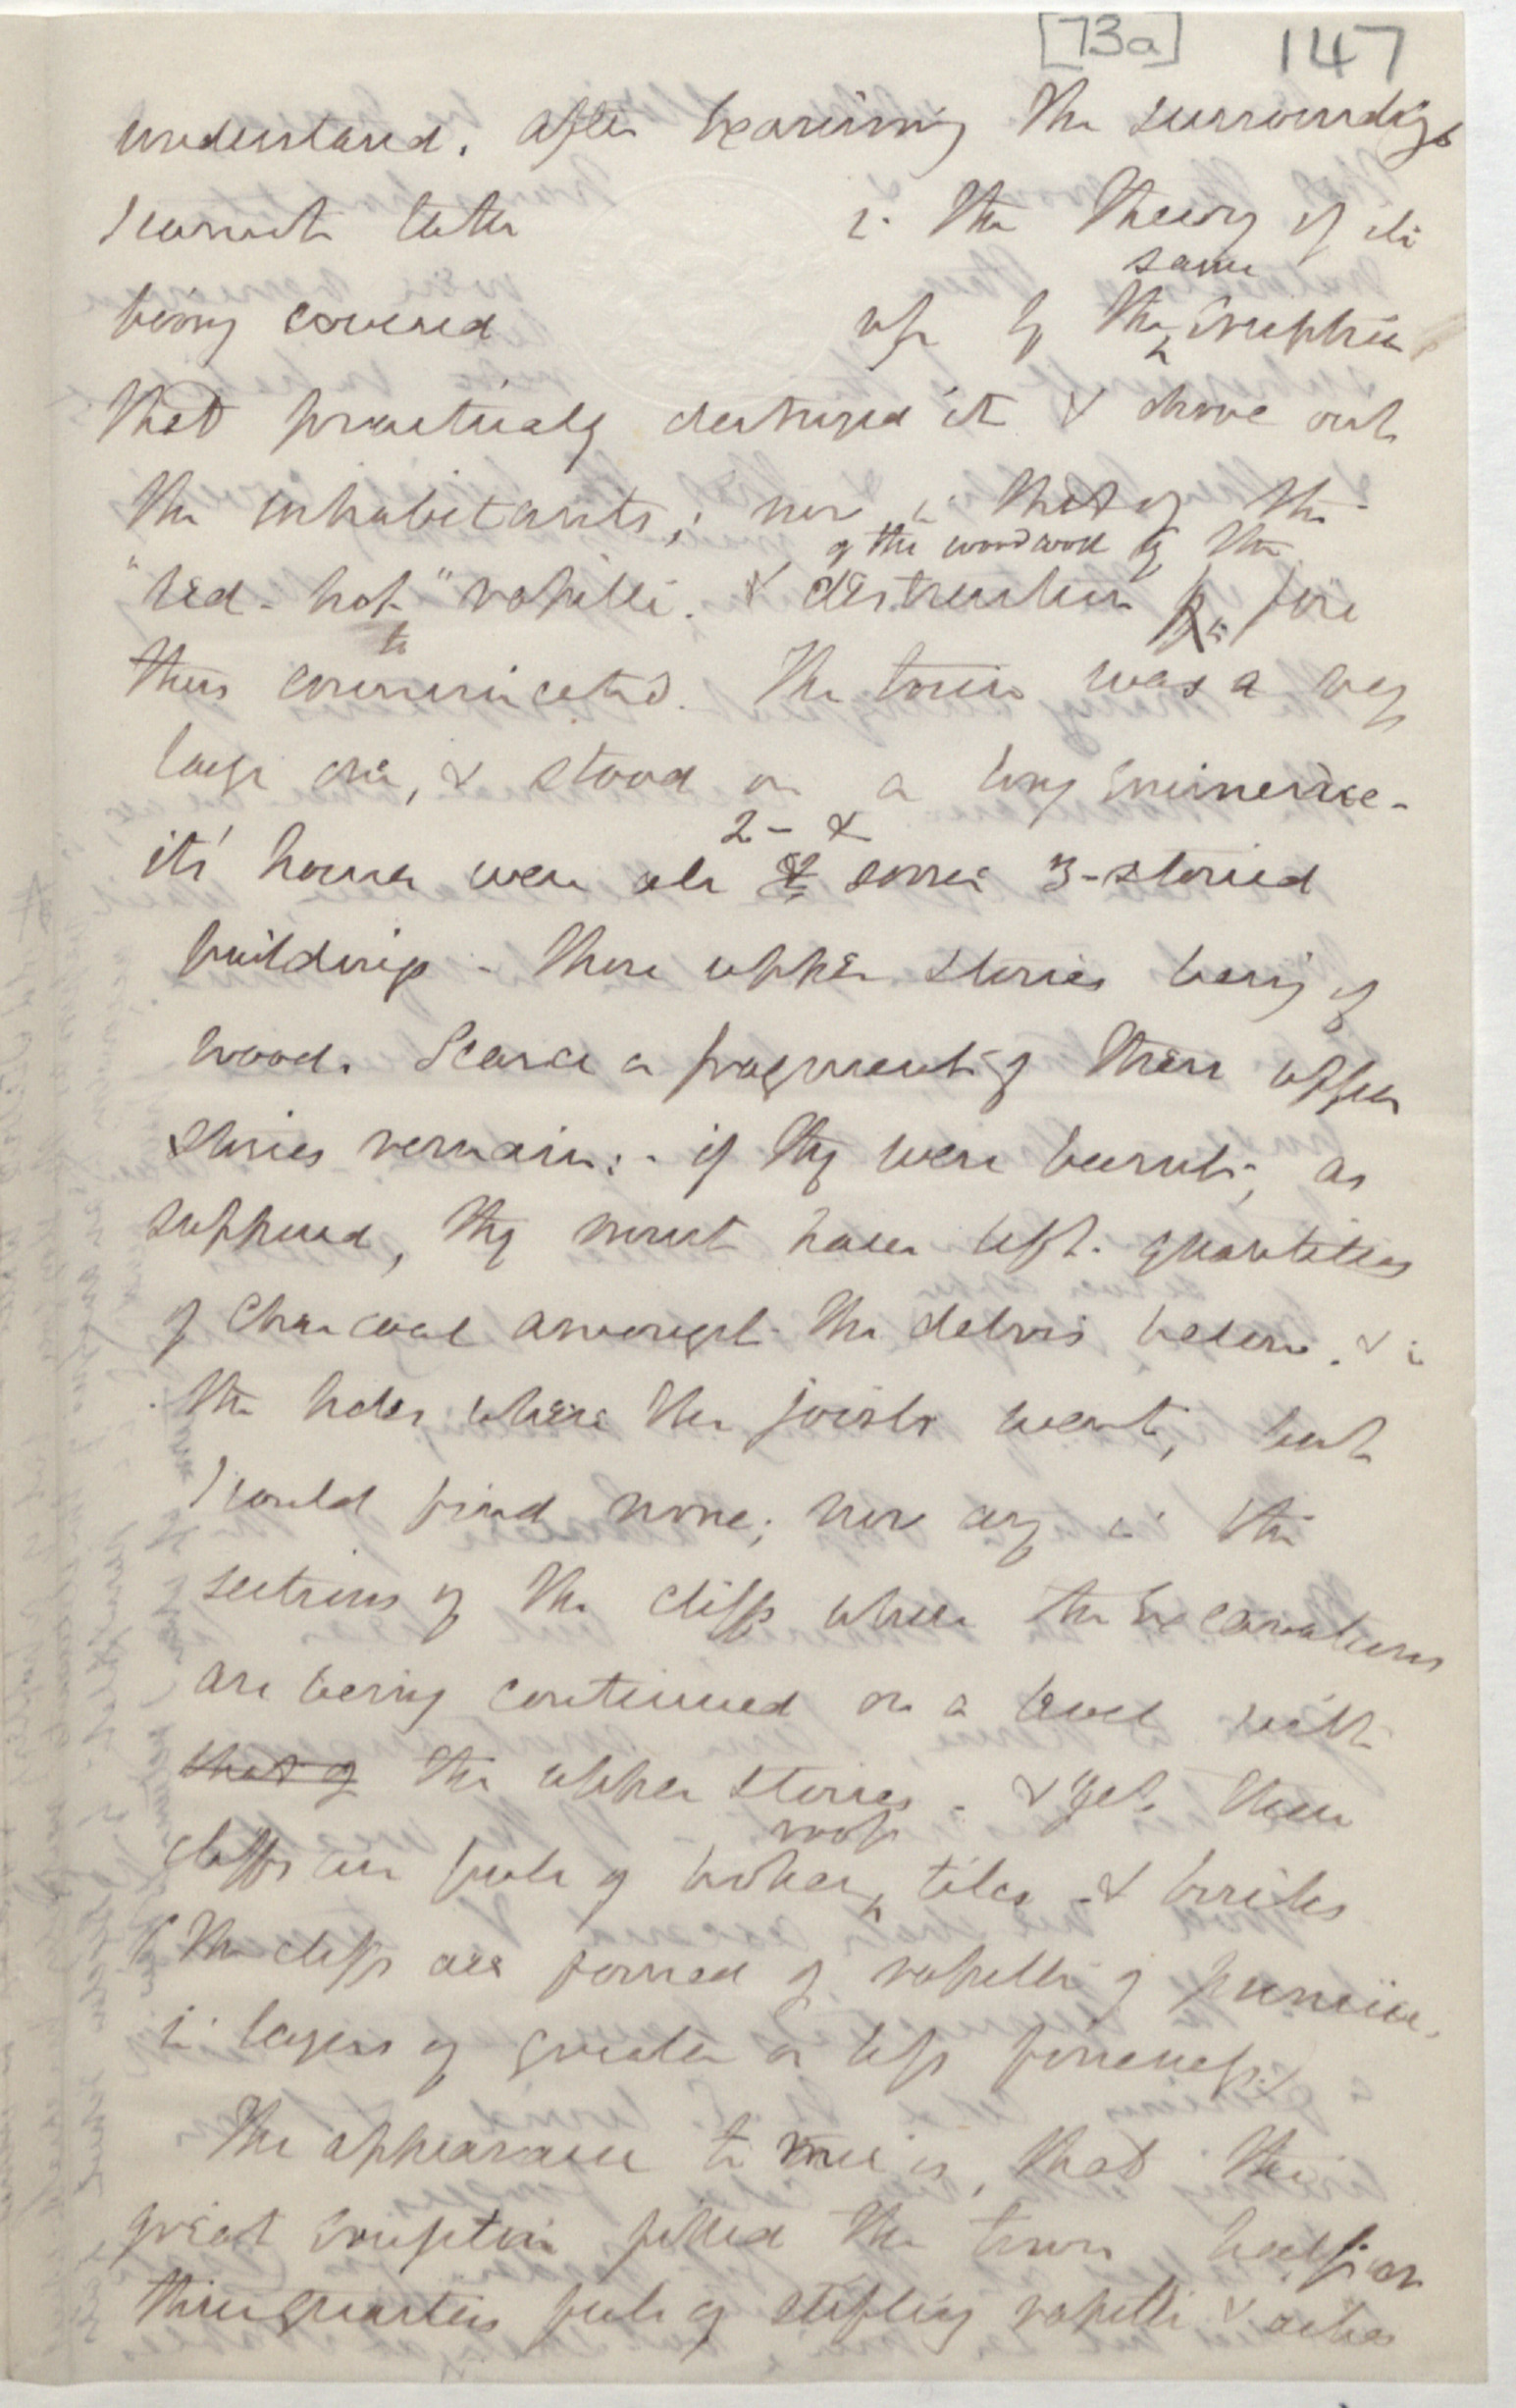 [73a] 147
understand. After examining the surroundings
I cannot take in the theory of its
being covered up by the same eruption
that practically destroyed it & drove out
the inhabitants; nor in that of the
"red-hot" rapilli. & destruction of the woodwork by the fire
thus communicated. The town was a very
large one, & stood on a long eminence -
its' houses were all 2- & some 3-storied
buildings - these upper stories being of
wood. Scarce a fragment of these upper
stories remain: - if they were burnt, as
supposed, they must have left quantities
of charcoal amongst the debris below. & in
the holes where the joists went, but
I could find none; nor any in the
sections of the cliffs where the excavations
are being continued on a level with
that of the upper stories - & yet these
cliffs are full of broken roof tiles & bricks
(The cliffs are formed of rapilli of pumice,
in layers of greater or less fineness.)
The appearance to me is, that the
great eruption filled the town half or
three quarters full of stifling rapilli & ashes